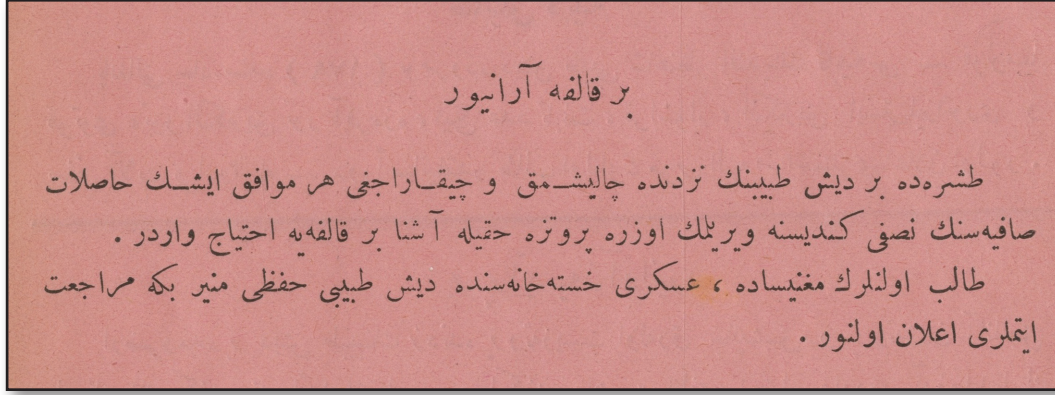 بر قالفه آرانيور
طشره‌ده بر ديش طبيبنك نزدنده چاليشـمق و چيقـاراجغى هر موافق ايشـك حاصلات
صافيه‌سنك نصفى كنديسنه ويريلمك اوزره پروتزه حقيله آشنا بر قالفه‌يه احتياج واردر .
طالب اولنلرك مغنيساده ، عسكرى خسته‌خانه‌سنده ديش طبيبى حفظى منير بكه مراجعت
ايتملرى اعلان اولنور .